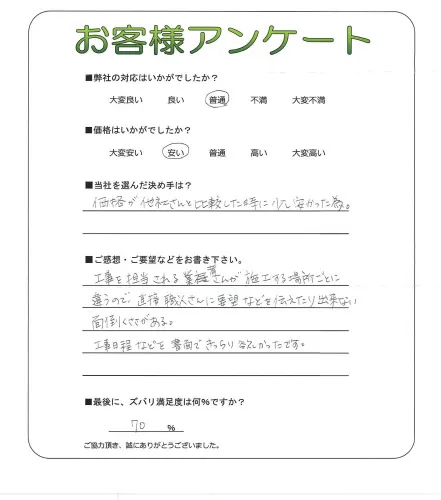 お客様アンケート
■弊社の対応はいかがでしたか？
大変良い 良い 普通 不満 大変不満
■価格はいかがでしたか？
大変安い 安い 普通 高い 大変高い
■当社を選んだ決め手は？
価格が他社さんと比較した時に少し安かった為。
■ご感想・ご要望などをお書き下さい。
工事を担当される業者さんが施工する場所ごとに
違うので、直接職人さんに要望などを伝えたり出来ない
面倒くささがある。
工事日程などを書面できっちり欲しかったです。
■最後に、ズバリ満足度は何%ですか？
70 %
ご協力頂き、誠にありがとうございました。